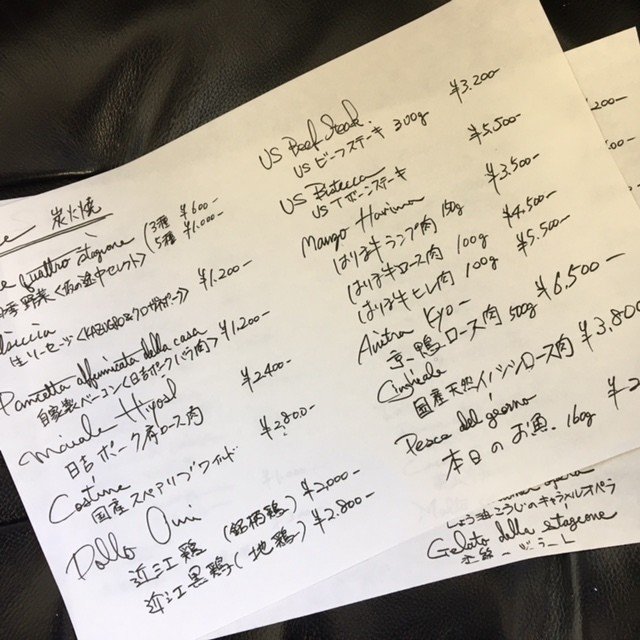 炭火焼
quattro stagione (3種 ¥600-
5種 ¥1.000-
季野菜
¥1.200-
生ソーセージ
Pancetta affumicata della casa ¥1.200-
自家製ベーコン<日吉ポークバラ肉>
Maiale Hiyoshi ¥2400-
日吉ポーク肩ロース肉
Costine ¥2.800-
国産スペアリブ
Pollo Oumi
近江鶏 (銘柄鶏) ¥2.000-
近江黒鶏 (地鶏) ¥2.800-
US Beef Steak ¥3.200-
USビーフステーキ 300g
US Bistecca ¥5.500-
US Tボーンステーキ
Mango Harima
はりま牛ランプ肉 150g ¥3.500-
はりま牛ロース肉 100g ¥4.500-
はりま牛ヒレ肉 100g ¥5.500-
Anitra Kyo-
京鴨ロース肉 500g ¥6,500-
Cinghiale
国産天然イノシシロース肉 ¥3.800
Pesce del giorno
本日のお魚. 160g ¥2
しょう油こうじのキャラメルオペラ
Gelato della stagione